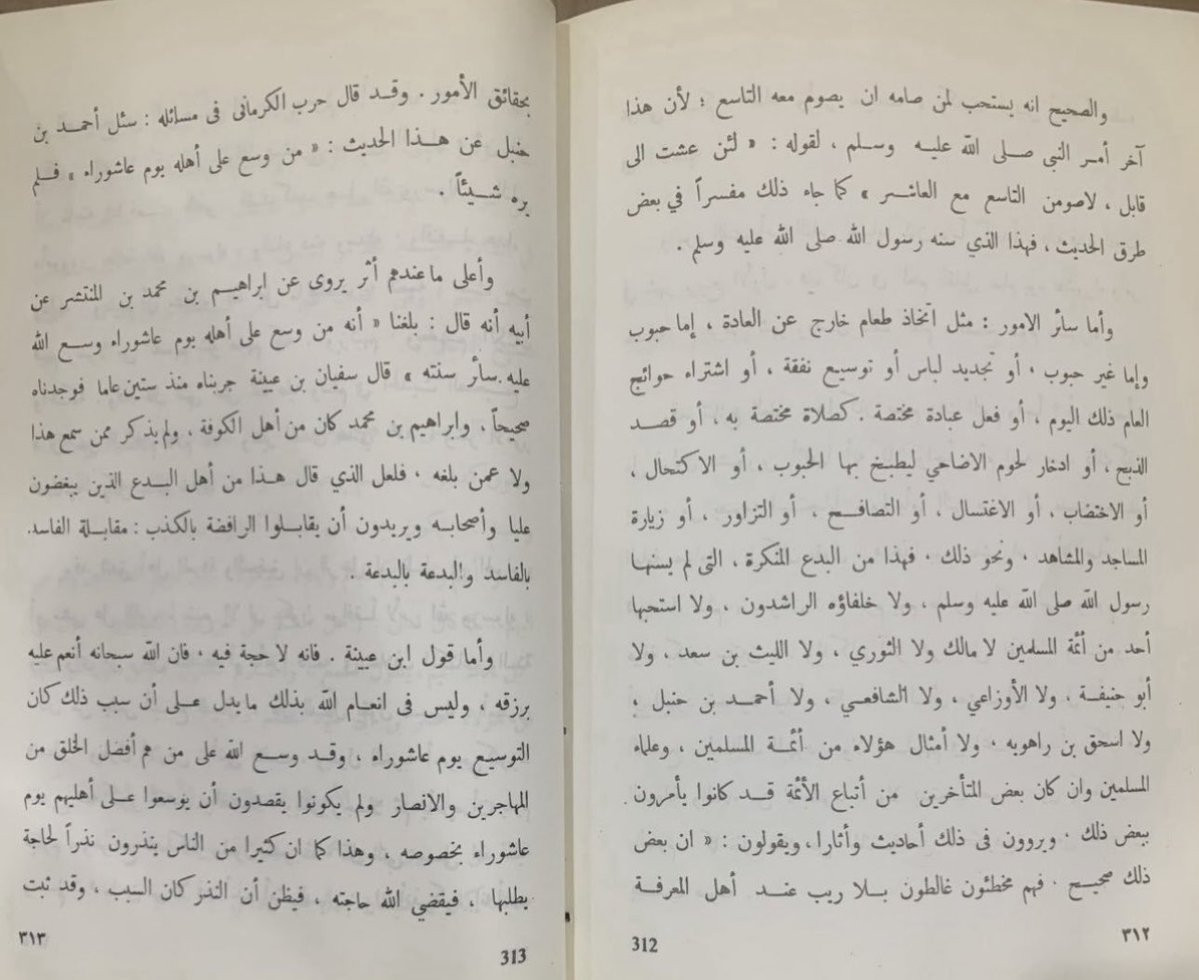 والصحيح انه يستحب لمن صامه ان يصوم معه التاسع ؛ لأن هذا
آخر أمر النبي صلى الله عليه وسلم ، لقوله : « لئن عشت الى
قابل ، لاصومن التاسع مع العاشر » كما جاء ذلك مفسراً في بعض
طرق الحديث ، فهذا الذي سنه رسول الله صلى الله عليه وسلم .
وأما سائر الامور : مثل اتخاذ طعام خارج عن العادة ، إما حبوب
وإما غير حبوب ، أو تجديد لباس أو توسيع نفقة ، أو اشتراء حوائج
العام ذلك اليوم ، أو فعل عبادة مختصة . كصلاة مختصة به ، أو قصد
الذبح ، أو ادخار لحوم الاضاحي ليطبخ بها الحبوب ، أو الاكتحال ،
أو الاختضاب ، أو الاغتسال ، أو التصافح ، أو التزاور ، أو زيارة
المساجد والمشاهد . ونحو ذلك . فهذا من البدع المنكرة ، التى لم يسنها
رسول الله صلى الله عليه وسلم ، ولا خلفاؤه الراشدون ، ولا استحبها
أحد من أئمة المسلمين لا مالك ولا الثوري ، ولا الليث بن سعد ، ولا
أبو حنيفة ، ولا الأوزاعي ، ولا الشافعي ، ولا أحمد بن حنبل ،
ولا اسحق بن راهويه . ولا أمثال هؤلاء من أئمة المسلمين ، وعلماء
المسلمين وان كان بعض المتأخرين من أتباع الأئمة قد كانوا يأمرون
ببعض ذلك . ويروون فى ذلك أحاديث وأثارا ، ويقولون : « ان بعض
ذلك صحيح . فهم مخطئون غالطون بلا ريب عند أهل المعرفة
312
٣١٢
بحقائق الأمور . وقد قال حرب الكرمانى فى مسائله : سئل أحمد بن
حنبل عن هذا الحديث : « من وسع على أهله يوم عاشوراء » فلم
يره شيئاً .
وأعلى ما عندهم أثر يروى عن ابراهيم بن محمد بن المنتشر عن
أبيه أنه قال : بلغنا « أنه من وسع على أهله يوم عاشوراء وسع الله
عليه سائر سنته » قال سفيان بن عيينة جربناه منذ ستين عاما فوجدناه
صحيحاً ، وابراهيم بن محمد كان من أهل الكوفة ، ولم يذكر ممن سمع هذا
ولا عمن بلغه . فلعل الذي قال هذا من أهل البدع الذين يبغضون
عليا وأصحابه ويريدون أن يقابلوا الرافضة بالكذب : مقابلة الفاسد
بالفاسد والبدعة بالبدعة .
وأما قول ابن عيينة . فانه لا حجة فيه . فان الله سبحانه أنعم عليه
برزقه ، وليس فى انعام الله بذلك ما يدل على أن سبب ذلك كان
التوسيع يوم عاشوراء ، وقد وسع الله على من هم أفضل الخلق من
المهاجرين والانصار ولم يكونوا يقصدون أن يوسعوا على أهليهم يوم
عاشوراء بخصوصه ، وهذا كما ان كثيرا من الناس ينذرون نذراً لحاجة
يطلبها ، فيقضي الله حاجته ، فيظن أن النذر كان السبب ، وقد ثبت
٣١٣
313